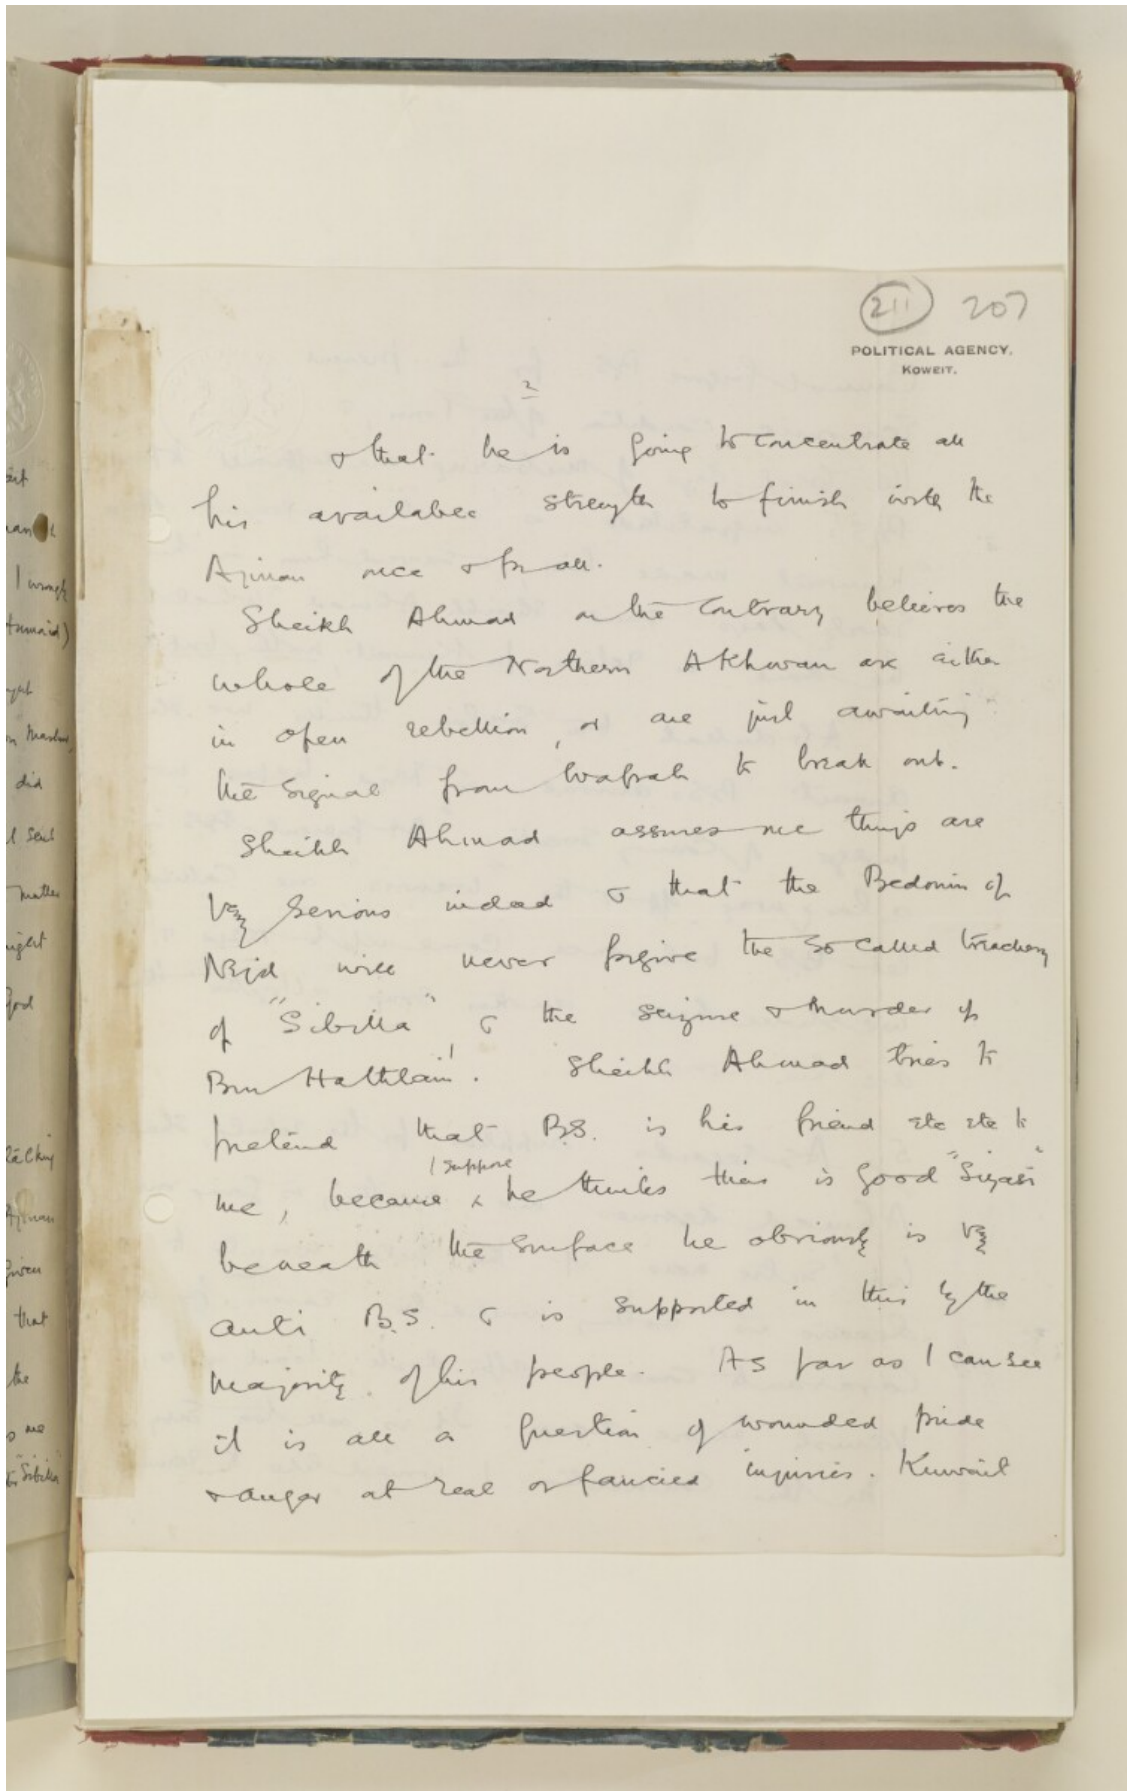 211 207
POLITICAL AGENCY,
KOWEIT.
2
& that he is going to concentrate all
his available strength to finish with the
Ajman once & for all.
Sheikh Ahmad on the contrary believes the
whole of the Northern Akhwan are either
in open rebellion, or are just awaiting
the signal from Wafrah to break out.
Sheikh Ahmad assures me things are
very serious indeed & that the Bedouin of
Nejd will never forgive the so called treachery
of "Sibilla" & the seizure & murder of
Bin Hathlain!. Sheikh Ahmad tries to
pretend that B.S. is his friend etc etc to
I suppose
me, because he thinks this is good "Siyasi"
beneath the surface he obviously is very
anti B.S. & is supported in this by the
majority of his people. As far as I can see
it is all a question of wounded pride
& anger at real or fancied injuries. Kuwait
I wrongly
did
I sent
matter
God
Ajman
given
that
the
me
"Sibilla"